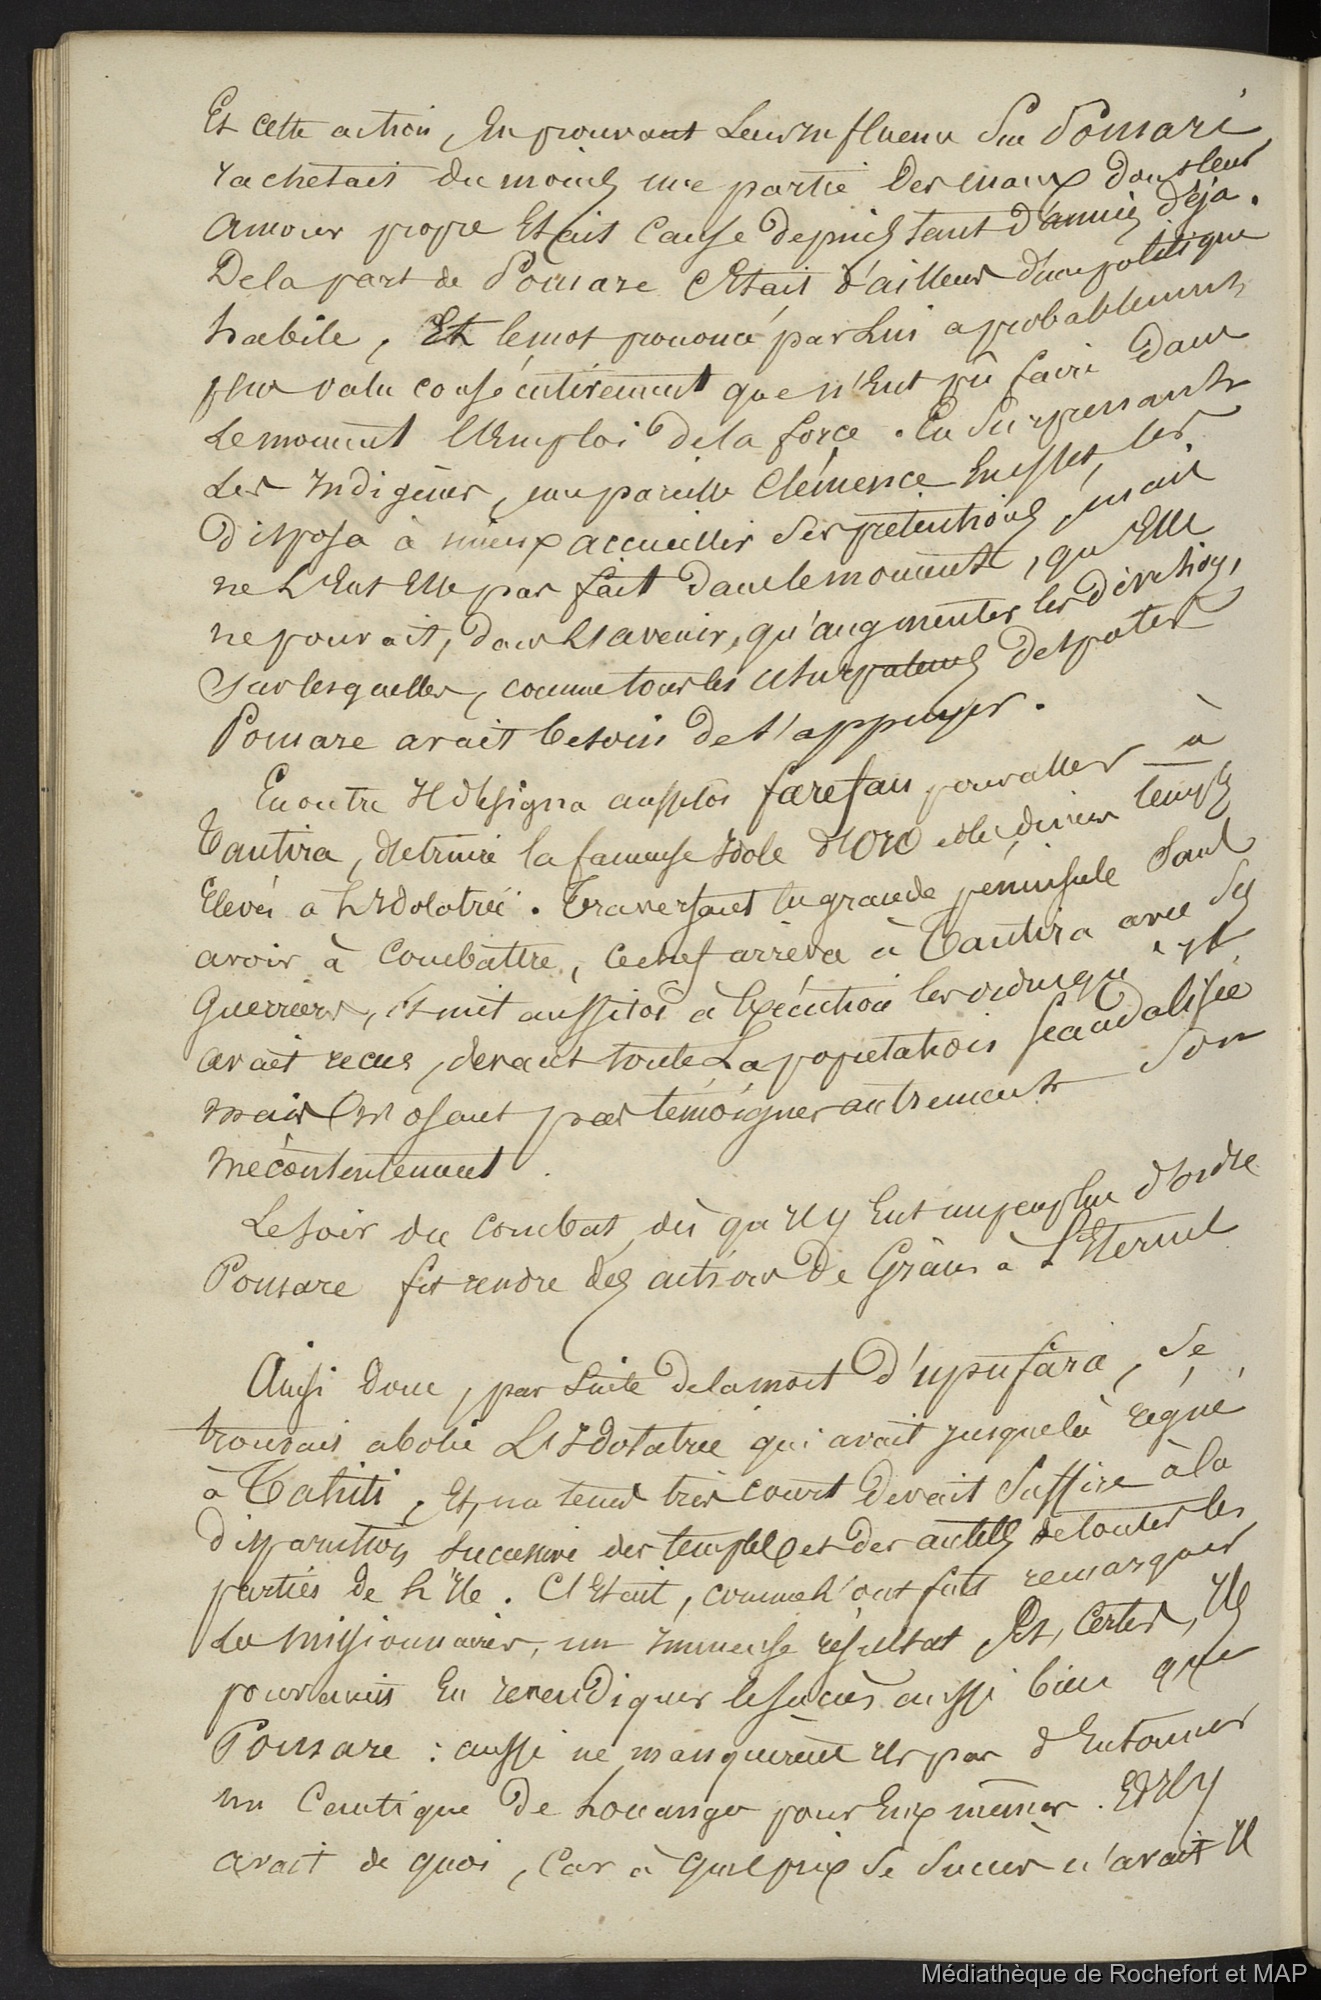 Et cette action, En prouvant Leur Influence Sur Pomaré
rachetait du moins une partie Des maux dont leur
amour propre Etait Cause depuis tant d'années déja.
De la part de Pomare C'Etait d'ailleurs d'une politique
habile, Et le mot prononcé par Lui a probablement
plus valu consécutivement que n'Eut pû faire dans
Le moment l'Emploi de la force. En Surprenant
Les Indigènes, une pareille Clémence En effet, les
disposa à mieux accueillir Ses prétentions, mais
ne L'Eut Elle pas fait dans le moment, qu'Elle
ne pouvait, dans L'avenir, qu'augmenter les divisions,
Sur lesquelles, comme tous les usurpateurs despotes
Pomare avait besoin de s'appuyer.
En outre Il désigna aussitôt farefau pour aller à
Tautira, détruire la fameuse Idole d'Oro et les divers temples
Elevés à L'Idolatrie. Traversant la grande peninsule Sans
avoir à Combattre, Ce chef arriva à Tautira avec Ses
Guerriers, Et mit aussitôt à Exécution les ordres qu'il
avait recus, devant toute La population scandalisée
mais n'osant pas témoigner autrement Son
mécontentement.
Le Soir du Combat, dès qu'Il y Eut un peu plus d'ordre
Pomare fit rendre des actions de Grâces à L'Eternel
Ainsi donc, par Suite de la mort d'upufara, Se
trouvait abolie L'Idolatrie qui avait jusque là régné
à Tahiti, Et un tems très court devait Suffire à la
disparution successive des temples et des autels de toutes les
parties de L'Ile. C'Etait, comme L'ont fait remarquer
Les missionnaires, un Immense résultat Et, Certes, Ils
pouvaient En revendiquer le succès aussi bien que
Pomare : aussi ne manquèrent Ils pas d'Entonner
un Cantique de Louanges pour Eux mêmes. Et Il y
avait de quoi, Car à Quel prix Ce Succès n'avait Il
Médiathèque de Rochefort et MAP